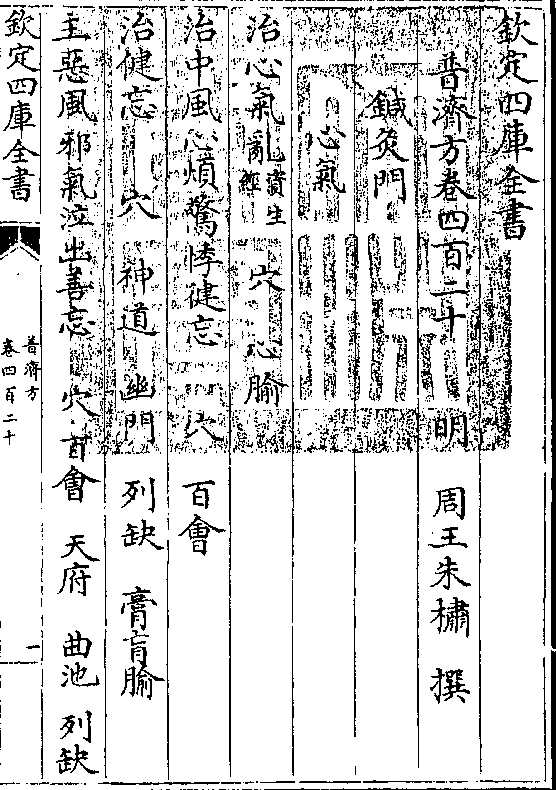 欽定四庫全書
普濟方卷四百二十　明　周王朱橚　撰
鍼灸門
心氣
治心氣 出資生經 穴　心腧
治中風心煩驚悸健忘　穴　百會
治健忘　穴　神道　幽門　列缺　膏肓腧
主惡風邪氣泣出善忘　穴　百會　天府　曲池　列缺
欽定四庫全書
普濟方
卷四百二十
一